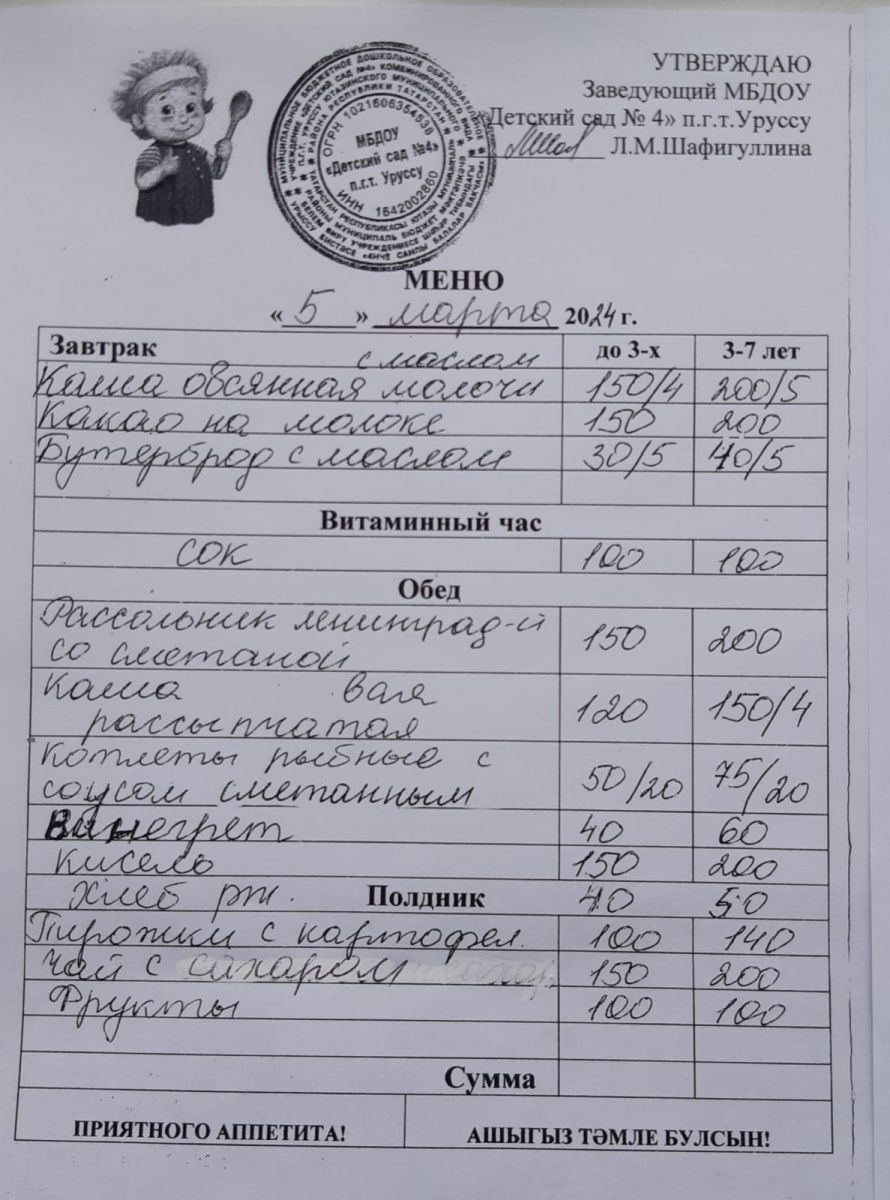 УТВЕРЖДАЮ
Заведующий МБДОУ
«Детский сад № 4» п.г.т.Уруссу
Л.М.Шафигуллина
ОГРН 1021606354538
МБДОУ
«Детский сад №4»
п.г.т. Уруссу
ИНН 1642002860
МЕНЮ
« 5 » марта 2024 г.
Завтрак до 3-х 3-7 лет
с маслом
Каша овсянная молочн 150/4 200/5
Какао на молоке 150 200
Бутерброд с маслом 30/5 40/5
Витаминный час
сок 100 100
Обед
Рассольник ленинград-й
со сметаной 150 200
Каша вая
рассыпчатая 120 150/4
Котлеты рыбные с
соусом сметанным 50/20 75/20
Винегрет 40 60
кисель 150 200
хлеб рж. Полдник 40 50
Пирожки с картофел. 100 140
чай с сахаром 150 200
Фрукты 100 100
Сумма
ПРИЯТНОГО АППЕТИТА! АШЫГЫЗ ТӘМЛЕ БУЛСЫН!